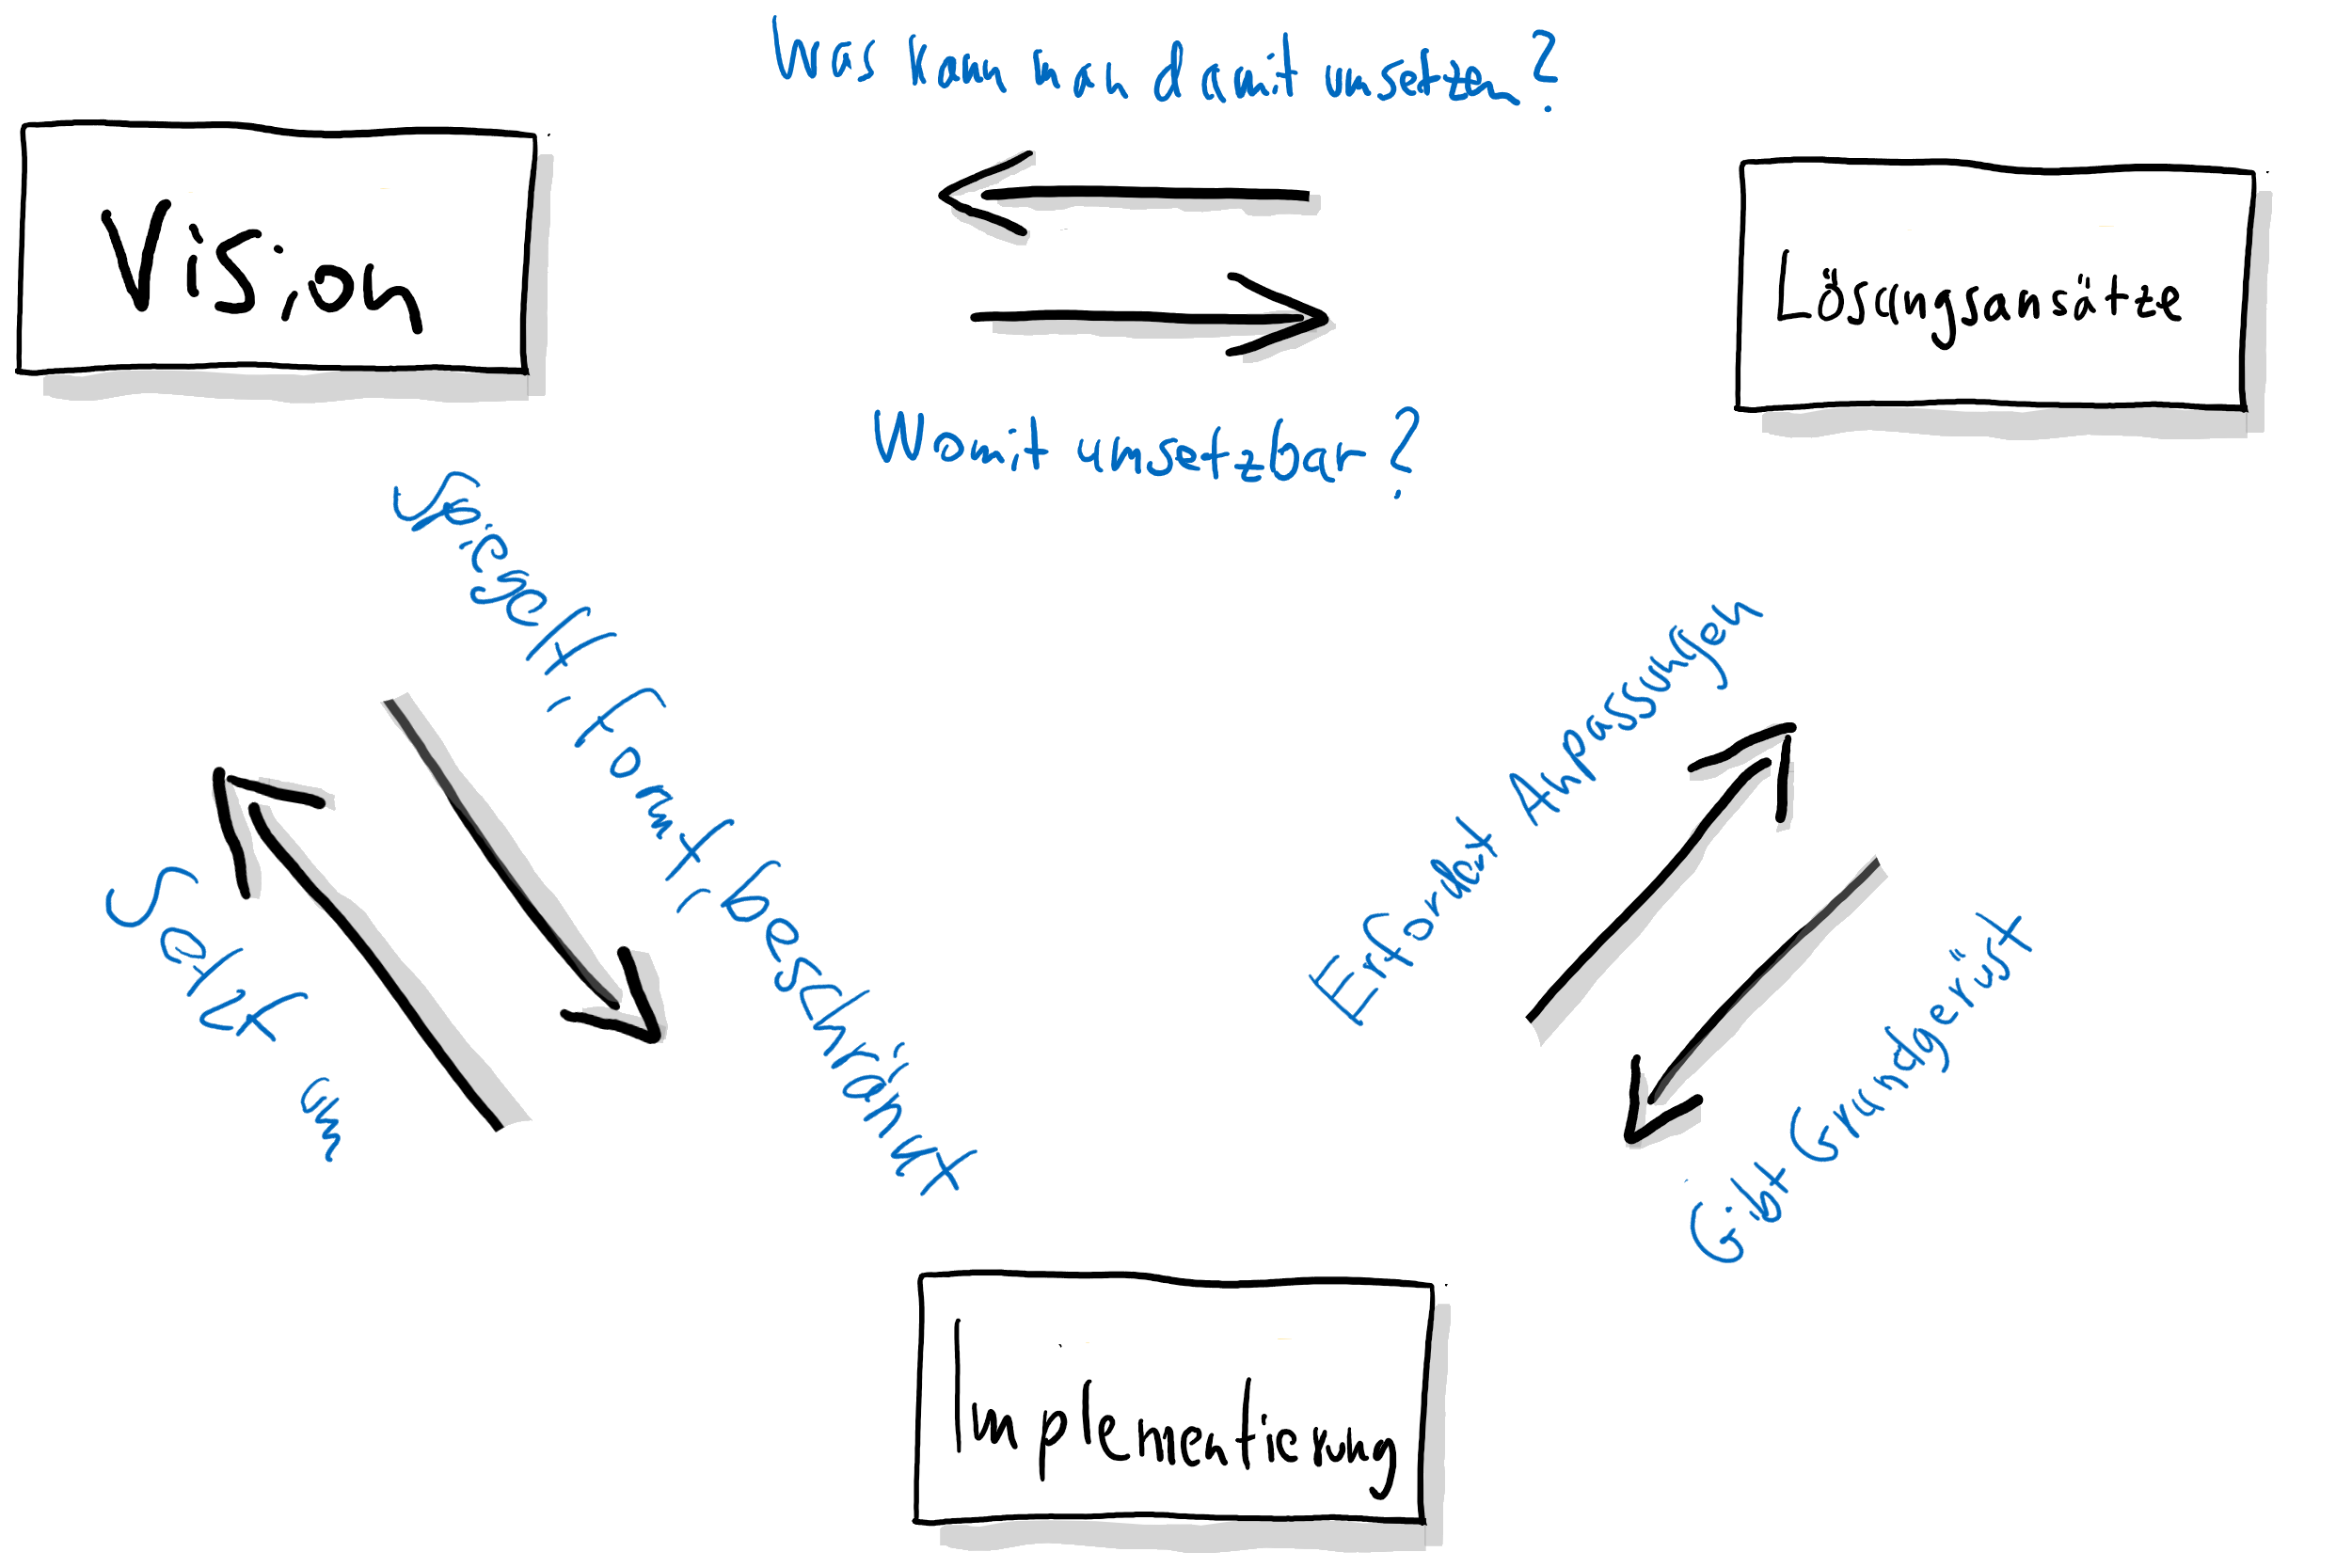 Was kann man damit umsetzen?
Vision
Lösungsansätze
Womit umsetzbar?
Spiegelt, Formt, beschränkt
Setzt um
Erfordert Anpassungen
Gibt Grundgerüst
Implementierung